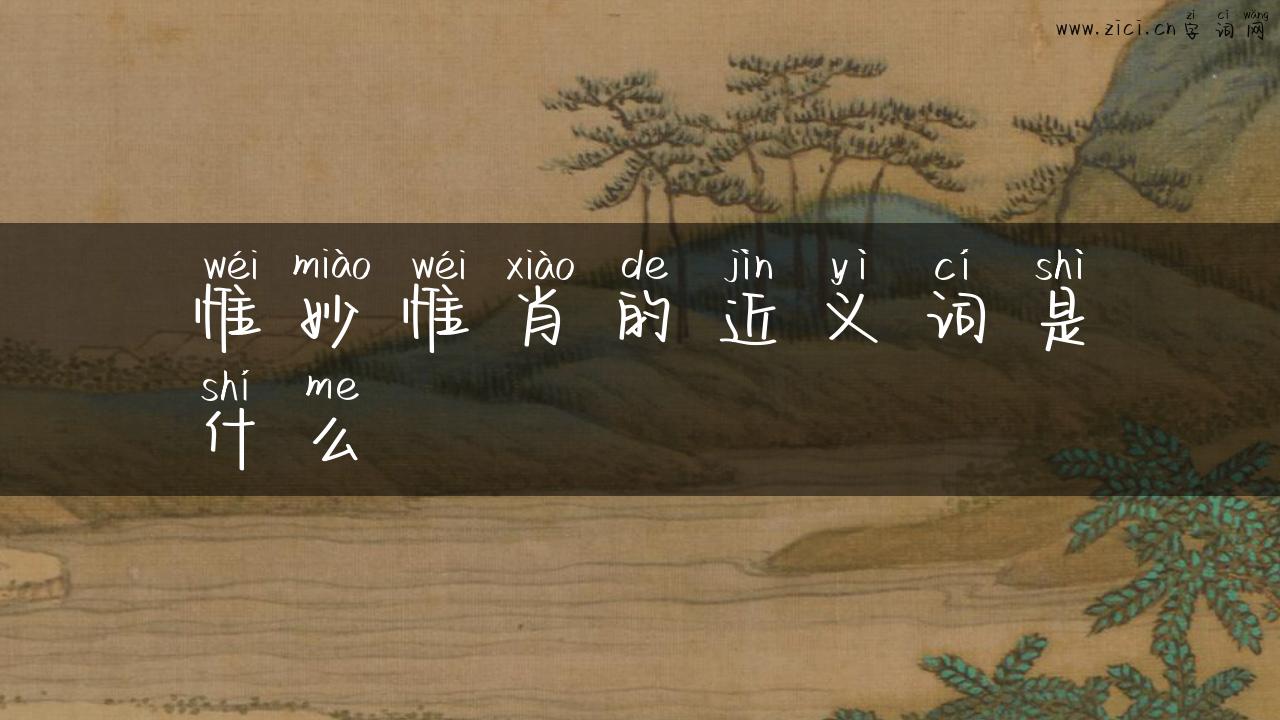 zì cí wǎng
www.zici.cn 字 词 网
wéi miào wéi xiào de jìn yì cí shì
惟 妙 惟 肖 的 近 义 词 是
shí me
什 么